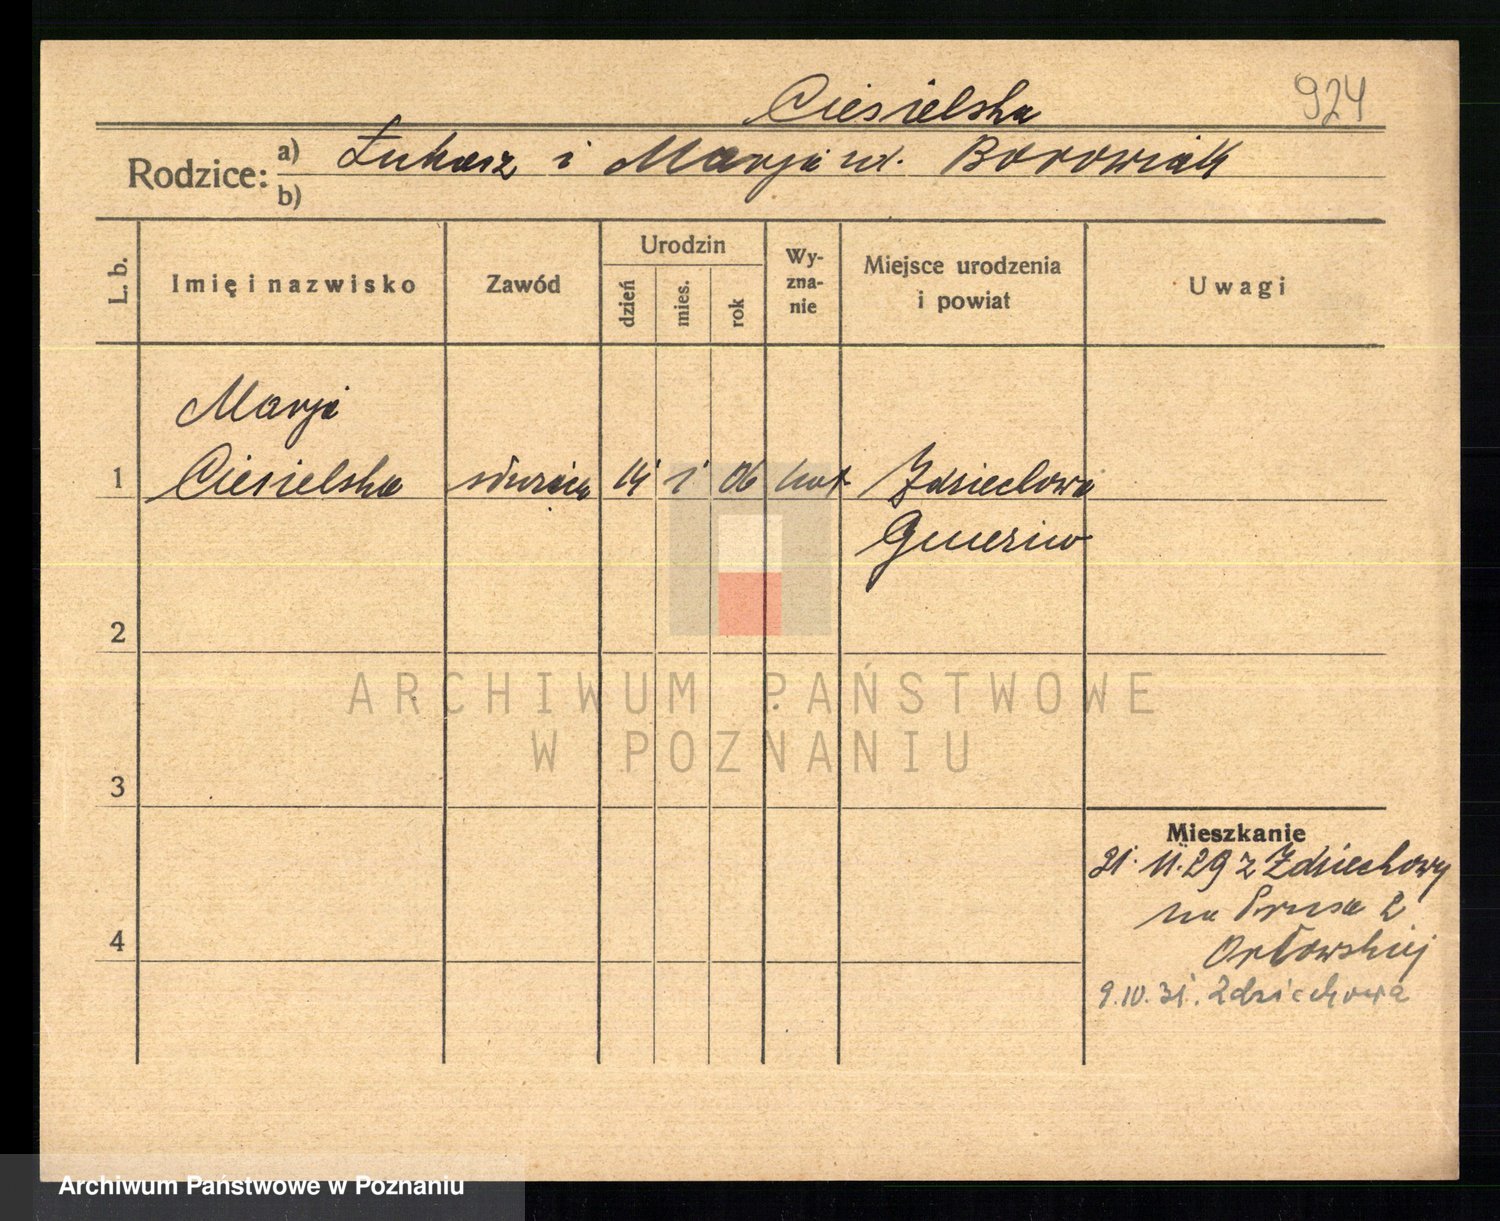 Ciesielska
924
Rodzice: a) Łukasz i Marja ur. Borowiak
b)
L. b.
Imię i nazwisko
Zawód
Urodzin
dzień
mies.
rok
Wy-
zna-
nie
Miejsce urodzenia
i powiat
Uwagi
Marja
1 Ciesielska służąca 14 1 06 kat Zdziechowa
Gniezno
2
3
4
Mieszkanie
21. 11. 29 z Zdziechowy
na Prusa 2
Orłowskiej
9.10.31. Zdziechowa
ARCHIWUM PAŃSTWOWE
W POZNANIU
Archiwum Państwowe w Poznaniu